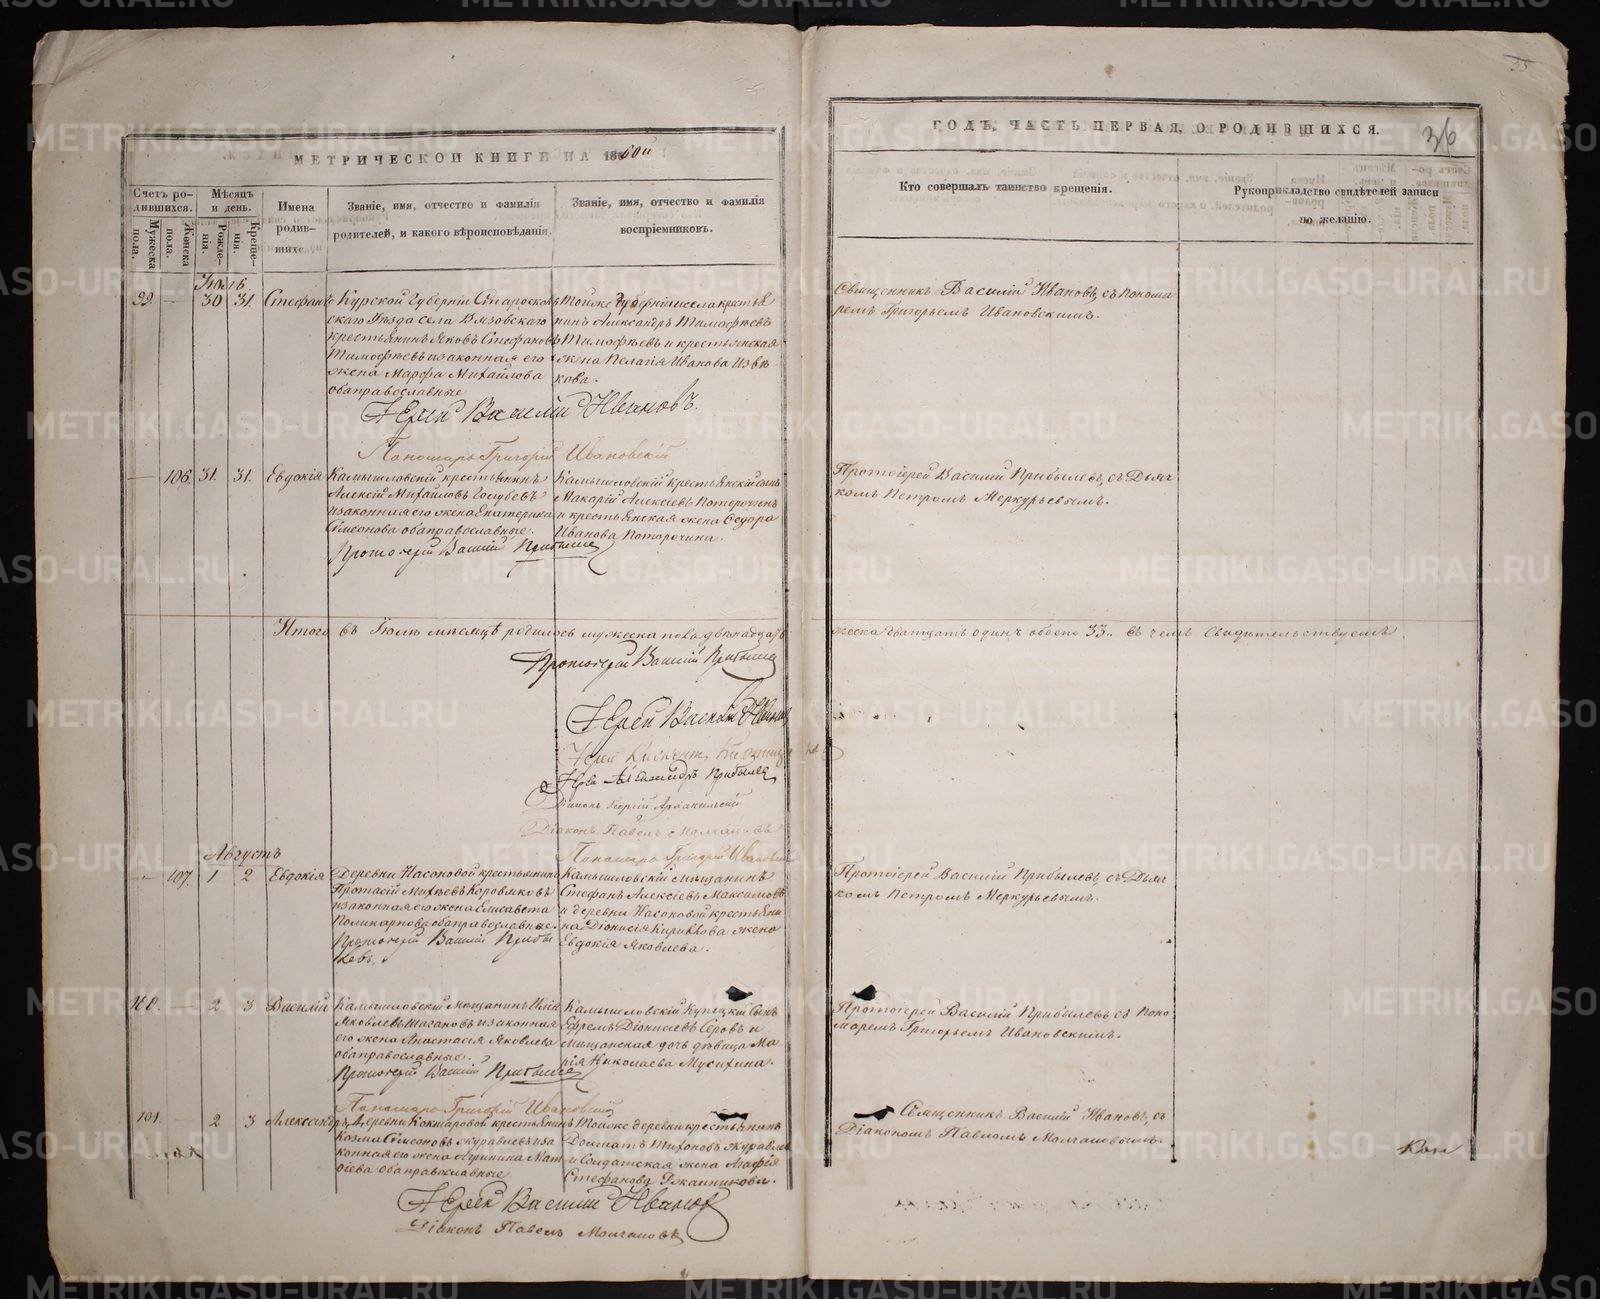 МЕТРИЧЕСКОЙ КНИГИ НА 1860й
Счетъ ро-
дившихся.
Мужеска
пола.
Женска
пола.
Мѣсяцъ
и день.
Рожде-
нія.
Креще-
нія.
Имена
родив-
шихся.
Званіе, имя, отчество и фамилія
родителей, и какого вѣроисповѣданія.
Званіе, имя, отчество и фамилія
воспріемниковъ.
Іюль
99. — 30 31. Стефанъ
Курской Губерніи Старосколь
скаго Уѣзда села Вязовскаго
крестьянинъ Яковъ Стефановъ
Тимофѣевъ и законная его
жена Марфа Михайлова
оба православные
Тойже Губерніи и села крестья
нинъ Александръ Тимофѣевъ
Тимофѣевъ и крестьянская
жена Пелагія Иванова Извѣ
кова.
Іерей Василій Ивановъ.
Пономарь Григорій Ивановскій
— 106. 31. 31. Евдокія
Камышловскій крестьянинъ
Алексій Михайловъ Голубевъ
и законная его жена Екатерина
Симеонова оба православные.
Протоіерей Василій Прибылевъ
Камышловскій Крестьянскій сынъ
Макарій Алексіевъ Поторочинъ
и крестьянская жена Ѳедора
Иванова Поторочина.
Итого въ Іюлѣ мѣсяцѣ родилось мужеска пола двѣнадцать
Протоіерей Василій Прибылевъ
Іерей Василій Ивановъ
Іерей Александръ Прибылевъ
Діаконъ Георгій
Діаконъ Павелъ Молчановъ
Пономарь Григорій Ивановскій
Августъ
— 107. 1 2 Евдокія
Деревни Насоновой крестьянинъ
Протасій Михѣевъ Коровяковъ
и законная его жена Елисавета
Поликарпова оба православные.
Протоіерей Василій Прибы
левъ.
Камышловскій мѣщанинъ
Стефанъ Алексіевъ Максимовъ
и деревни Насоновой крестьяни
на Діонисія Кириллова жена
Евдокія Яковлева.
100. — 2 3 Василій
Камышловскій мѣщанинъ Илія
Яковлевъ Шагановъ и законная
его жена Анастасія Яковлева
оба православные.
Протоіерей Василій Прибылевъ
Пономарь Григорій Ивановскій
Камышловскій Купецкій Сынъ
Ефремъ Діонисіевъ Серовъ и
мѣщанская дочь дѣвица Ма
рія Николаева Мусихина.
101. — 2 3 Александръ
Деревни Кокшаровой крестьянинъ
Козма Симеоновъ Журавлевъ и за
конная его жена Агрипина Мат
ѳіева оба православные
Тойже деревни крестьянинъ
Доматъ Тихоновъ Журавлевъ
и Солдатская жена Агафія
Стефанова Ржанникова.
Іерей Василій Ивановъ
Діаконъ Павелъ Молчановъ
ГОДЪ, ЧАСТЬ ПЕРВАЯ, О РОДИВШИХСЯ.
36
Кто совершалъ таинство крещенія.
Рукоприкладство свидѣтелей записи
по желанію.
Священникъ Василій Ивановъ, съ Понома
ремъ Григорьемъ Ивановскимъ.
Протоіерей Василій Прибылевъ, съ Дьяч
комъ Петромъ Меркурьевымъ.
жеска двадцать одинъ обоего 33. въ чемъ Свидѣтельствуемъ.
Протоіерей Василій Прибылевъ, съ Дьяч
комъ Петромъ Меркурьевымъ.
Протоіерей Василій Прибылевъ съ Поно
маремъ Григорьемъ Ивановскимъ.
Священникъ Василій Ивановъ, съ
Діакономъ Павломъ Молчановымъ.
METRIKI.GASO-URAL.RU